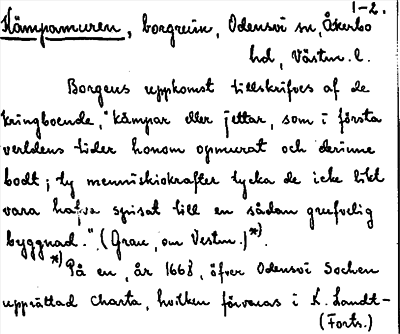 1-2.
Kämpamuren, borgruin, Odensvi sn, Åkerbo
hd, Västm. l.
Borgens uppkomst tillskrifves af de
kringboende, "kämpar eller jettar, som i första
verldens tider honom opmurat och derinne
bodt; ty menniskiokrafter tycka de icke likt
vara hafva spisat till en sådan grufvelig
byggnad." (Grau, om Vestm.)*).
*) På en, år 1668, öfver Odensvi Sochen
upprättad Charta, hvilken förvaras i K. Landt-
(Forts.)